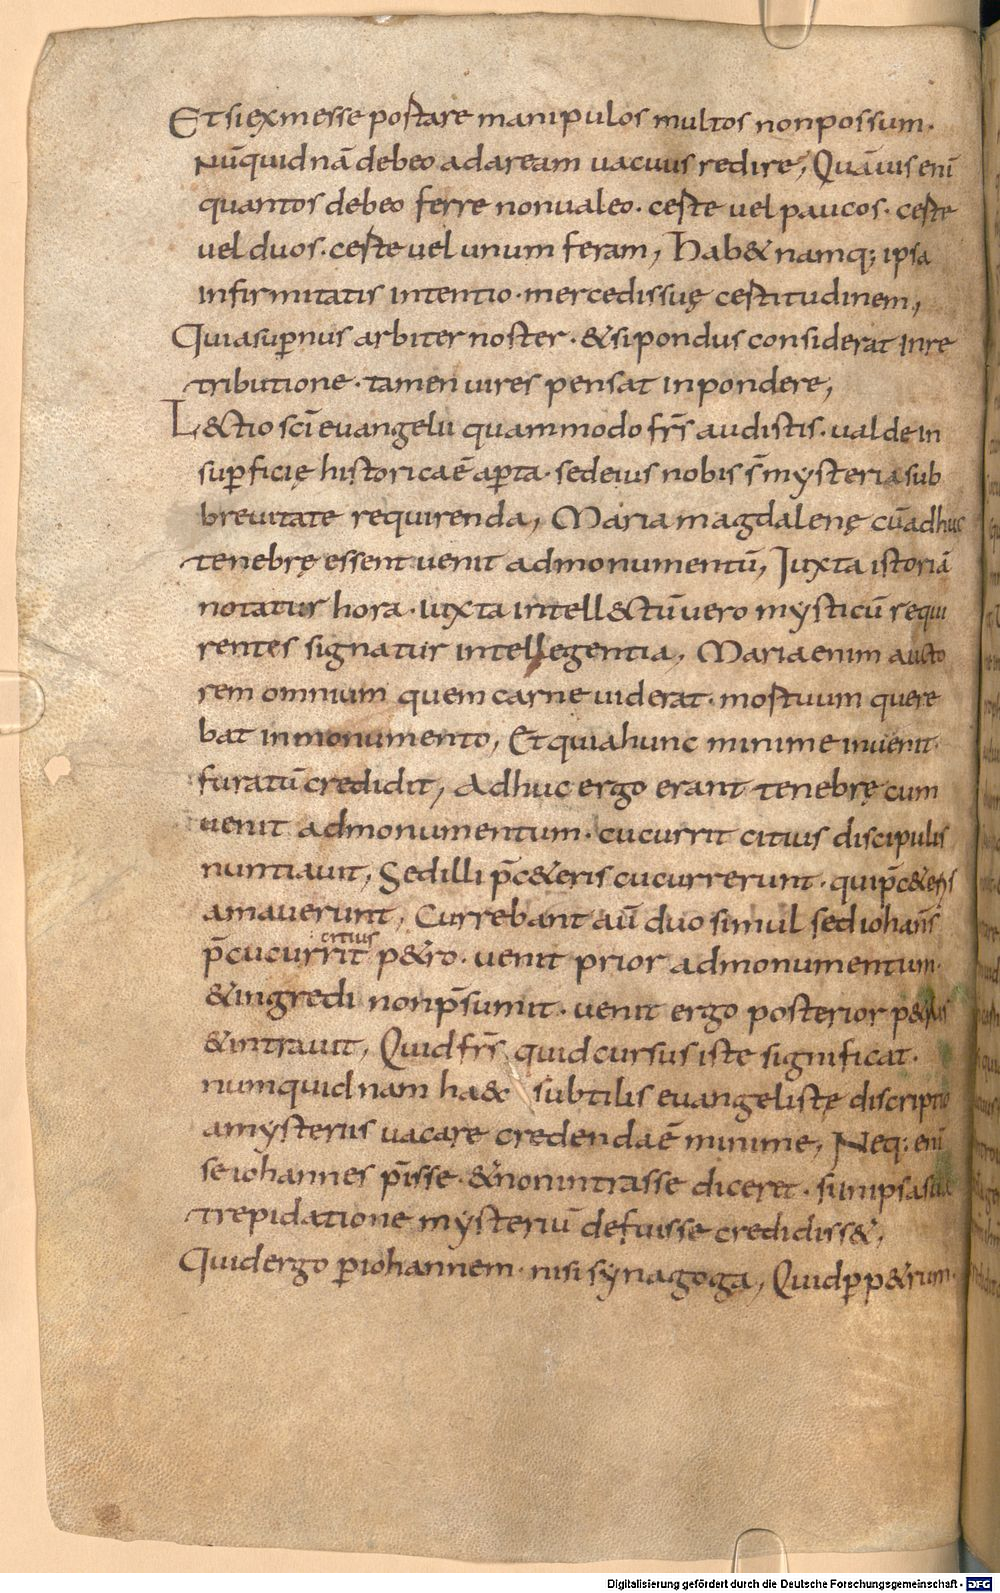 Et si ex messe portare manipulos multos non possum·
nū quid nā debeo ad aream uacuus redire, Quāuis enī
quantos debeo ferre non ualeo· certe uel paucos· certe
uel duos· certe uel unum feram, Hab& namq; ipsa
infirmitatis intentio· mercedis suę certitudinem,
Quia sup̄nus arbiter noster· & si pondus considerat in re
tributione· tamen uires pensat in pondere,
L&ctio scī euangelii quam modo fr̄s audistis· ualde in
sup̄ficię historica ē ap̄ta· sed eius nobis s̄ mysteria sub
breuitate requirenda, Maria magdalenę cū adhuc
tenebrę essent uenit ad monumentū, Iuxta istoriā
notatur hora· iuxta intell&ctū uero mysticū requi
rentes signatur intellegentia, Maria enim aucto
rem omnium quem carne uiderat· mortuum quere
bat in monumento, Et quia hunc minime inuenit·
furatū credidit, Adhuc ergo erant tenebrę cum
uenit ad monumentum· cucurrit citius discipulis
nuntiauit, Sed illi p̄ c&eris cucurrerunt· qui p̄ c&eris
amauerunt, Currebant aū duo simul sed iohan̄s
p̄cucurrit citius p&ro· uenit prior ad monumentum·
& ingredi non p̄sumit· uenit ergo posterior p&rus
& intrauit, Quid fr̄s quid cursus iste significat·
numquid nam ha&c subtilis euangelistę discriptio
a mysteriis uacare credenda ē minime, Neq; enī
se iohannes p̄isse· & non intrasse diceret· si in ipsa sua
trepidatione mysteriū defuisse credidiss&,
Quid ergo p̄ iohannem· nisi synagoga, Quid p̄ p&rum·
Digitalisierung gefördert durch die Deutsche Forschungsgemeinschaft - DFG